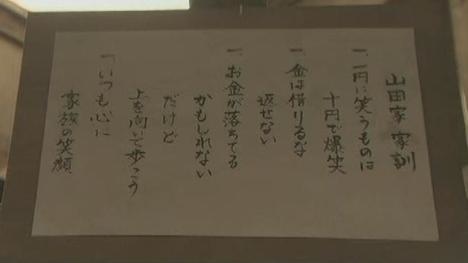 山田家 家訓
一、一円に笑うものは
十円で爆笑
一、金は借りるな
返せない
一、お金が落ちてる
かもしれない
だけど
上を向いて歩こう
一、いつも心に
家族の笑顔